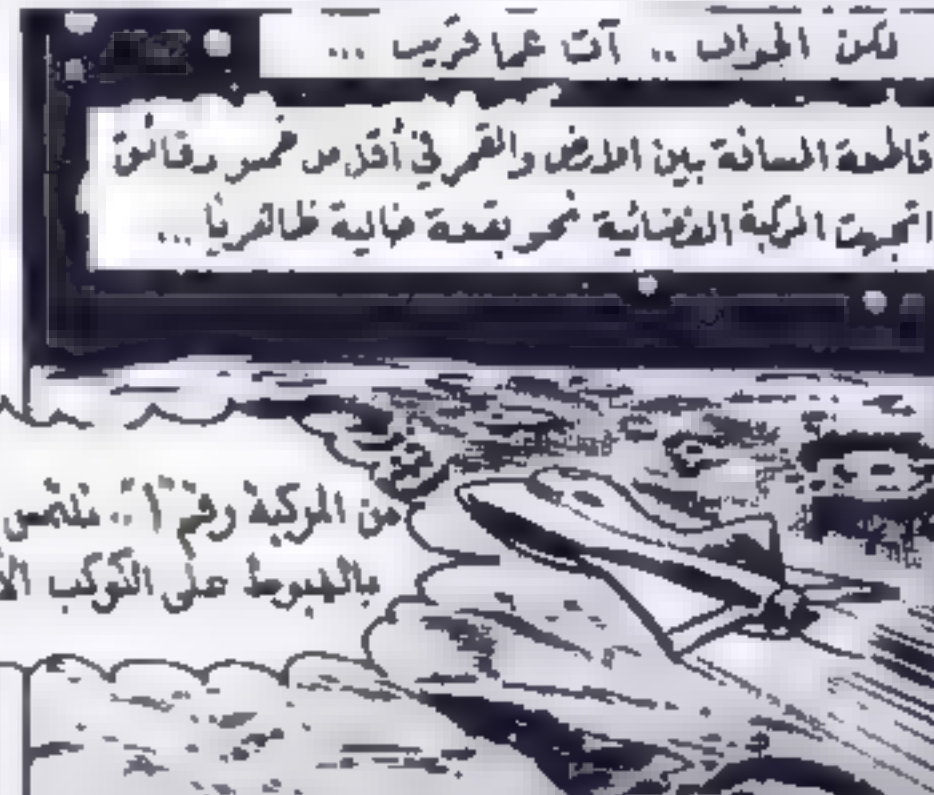 لكن الجواب .. آت عما قريب ...
قاطعة المسافة بين الارض والقمر في أقل من خمس دقائق
اتجهت المركبة الفضائية نحو بقعة خالية ظاهريا ...
من المركبة رقم "١" .. نلتمس
بالهبوط على الكوكب